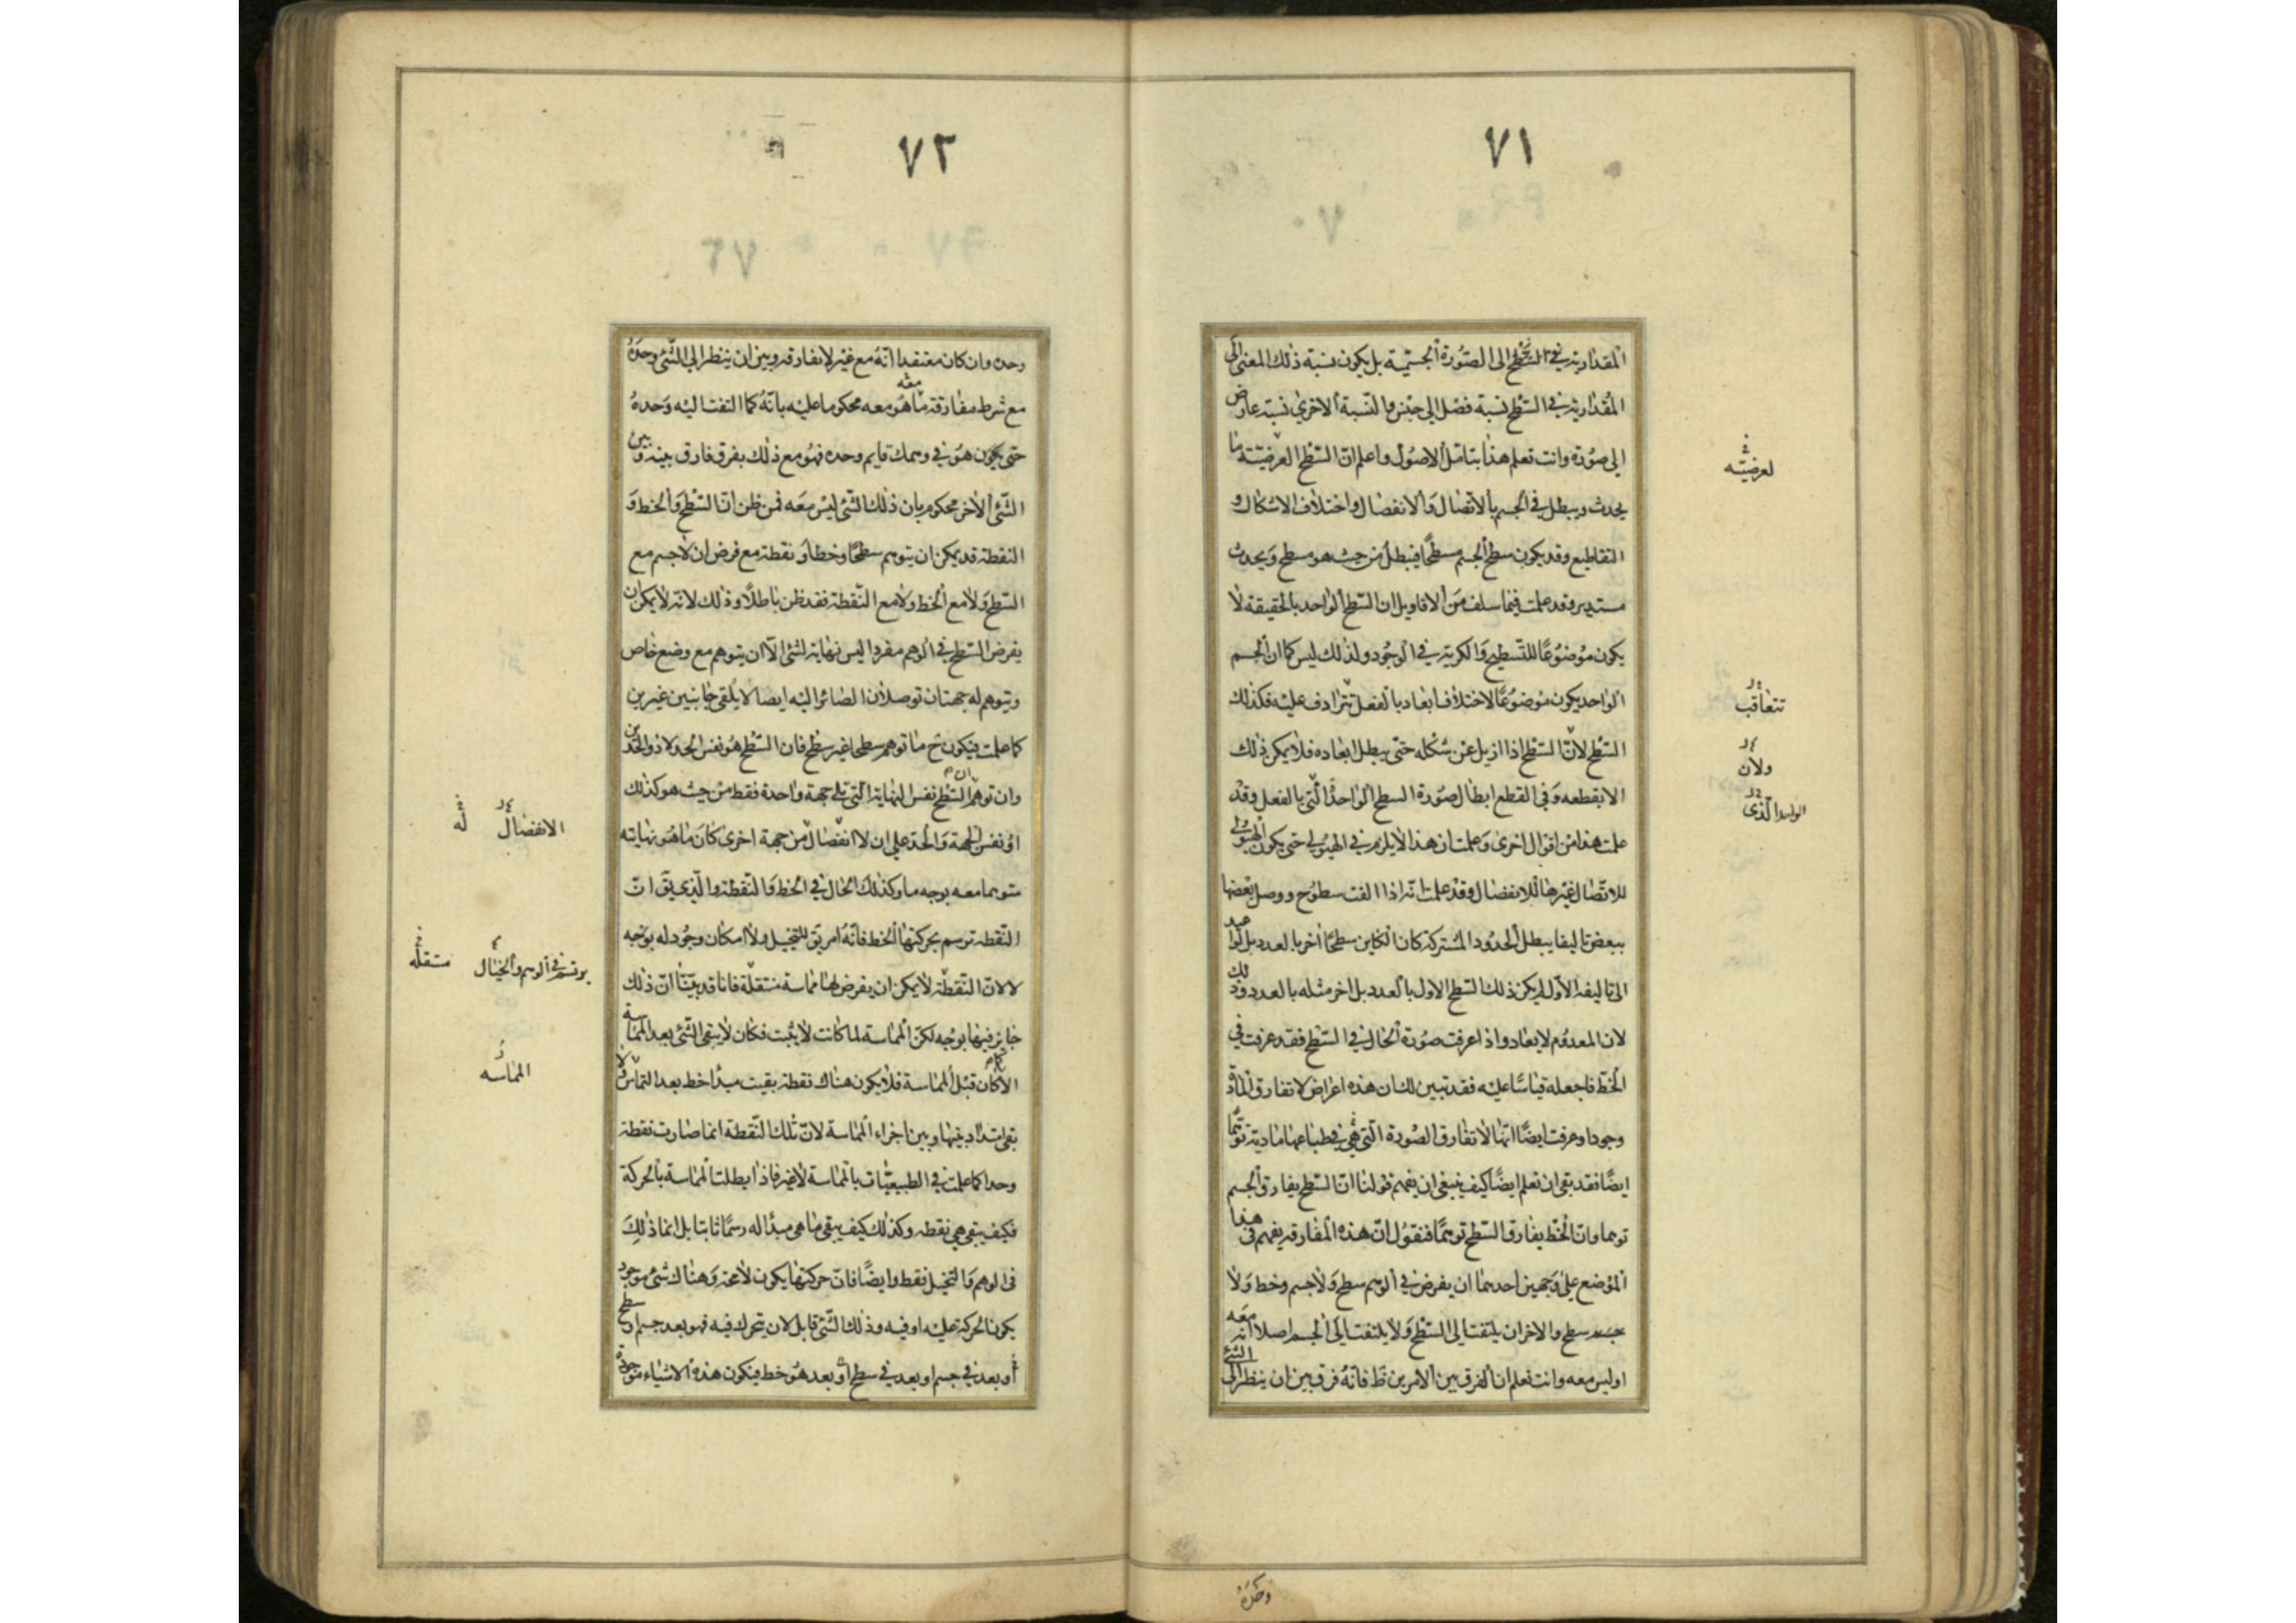 ٧١
المقدارية في السطح الى الصورة الجسمية بل يكون نسبة ذلك المعنى الى
المقدارية في السطح نسبة فصل الى جنس والنسبة الاخرى نسبة عارض
الى صورة وانت تعلم هذا بتامل الاصول واعلم ان السطح العرضيته ما
يحدث ويبطل في الجسم بالاتصال والانفصال واختلاف الاشكال و
التقاطيع وقد يكون سطح الجسم مسطحا فيبطل من حيث هو مسطح ويحدث
مستدير وقد علمت فيما سلف من الاقاويل ان السطح الواحد بالحقيقة لا
يكون موضوعا للتسطيح والكرية في الوجود ولذلك ليس كما ان الجسم
الواحد يكون موضوعا لاختلاف ابعاد بالفعل تترادف عليه فكذلك
السطح لان السطح اذا ازيل عن شكله حتى يبطل ابعاده فلا يمكن ذلك
الا بقطعه وفي القطع ابطال صورة السطح الواحد التي بالفعل وقد
علمت هذا من اقوال اخرى وعلمت ان هذا لا يلزم في الهيولى حتى يكون الهيولى
للاتصال غيرها للانفصال وقد علمت انه اذا الفت سطوح ووصل بعضها
ببعض تاليفا يبطل الحدود المشتركة كان الكاين سطحا اخر بالعدد بل لو اعيد
الى تاليفه الاول لم يكن ذلك السطح الاول بالعدد بل اخر مثله بالعدد وذلك
لان المعدوم لا يعاد واذا عرفت صورة الحال في السطح فقد عرفت في
الخط فاجعله قياسا عليه فقد تبين لك ان هذه اعراض لا تفارق المادة
وجودا وعرفت ايضا انها لا تفارق الصورة التي هي في طباعها مادية توهما
ايضا فقد بقى ان تعلم ايضا كيف ينبغي ان يفهم قولنا ان السطح يفارق الجسم
توهما وان الخط يفارق السطح توهما فنقول ان هذه المفارقه يفهم في هذا
الموضع على وجهين احدهما ان يفرض في الوهم سطح ولا جسم وخط ولا
سطح والاخر ان يلتفت الى السطح ولا يلتفت الى الجسم اصلا انه معه
او ليس معه وانت تعلم ان الفرق بين الامرين ظ فانه فرق بين ان ينظر الى الشئ
لعرضيته
تتعاقب
ولان
الذى
وحده
٧٢
وحده وان كان معتقدا انه مع غيره لا يفارقه وبين ان ينظر الى الشئ وحده
مع شرط مفارقته ما هو معه محكوما عليه بانه كما التفت اليه وحده
حتى يكون هو في وهمك قايم وحده فهو مع ذلك بفرق فارق بينه وبين
الشئ الاخر محكوم بان ذلك الشئ ليس معه فمن ظن ان السطح والخط و
النقطة قد يمكن ان يتوهم سطحا وخطا ونقطة مع فرض ان لا جسم مع
السطح ولا مع الخط ولا مع النقطة فقد ظن باطلا وذلك لانه لا يمكن ان
يفرض السطح في الوهم مفردا ليس نهاية لشئ الا ان يتوهم مع وضع خاص
ويتوهم له جهتان توصلان الصائر اليه ايصالا يلقى جانبين غيرين
كما علمت فيكون ح ما توهم سطحا غير سطح فان السطح هو نفس الحد لا ذو الحدين
وان توهم السطح نفس النهاية التي تلي جهة واحدة فقط من حيث هو كذلك
او نفس الجهة والحد على ان لا انفصال من جهة اخرى كان ما هو نهايته
متوهما معه بوجه ما وكذلك الحال في الخط والنقطة والذي يق ان
النقطة ترسم بحركتها الخط فانه امر يق للتخيل ولا امكان وجود له بوجه
لا لان النقطة لا يمكن ان يفرض لها مماسة منتقلة فانا قد بينا ان ذلك
جايز فيها بوجه لكن المماسة لما كانت لا يثبت فكان لا يبقى الشئ بعد المماسة
الا كما كان قبل المماسة فلا يكون هناك نقطة بقيت مبدأ خط بعد التماس ولا
يبقى امتداد بينها وبين اجزاء المماسة لان تلك النقطة انما صارت نقطة
وحدا كما علمت في الطبيعيات بالمماسة لا غير فاذا بطلت المماسة بالحركة
فكيف يبقى هي نقطه وكذلك كيف يبقى ما هي مبدأ له رسما ثابتا بل انما ذلك
في الوهم والتخيل فقط وايضا فان حركتها يكون لا محة وهناك شئ موجود
يكون الحركة عليه او فيه وذلك الشئ قابل لان يتحرك فيه فهو بعد جسم او سطح
او بعد في جسم او بعد في سطح او بعد هو خط فيكون هذه الاشياء موجودة
الانفصال له
يرتسم في الوهم والخيال متنقله
المماسه